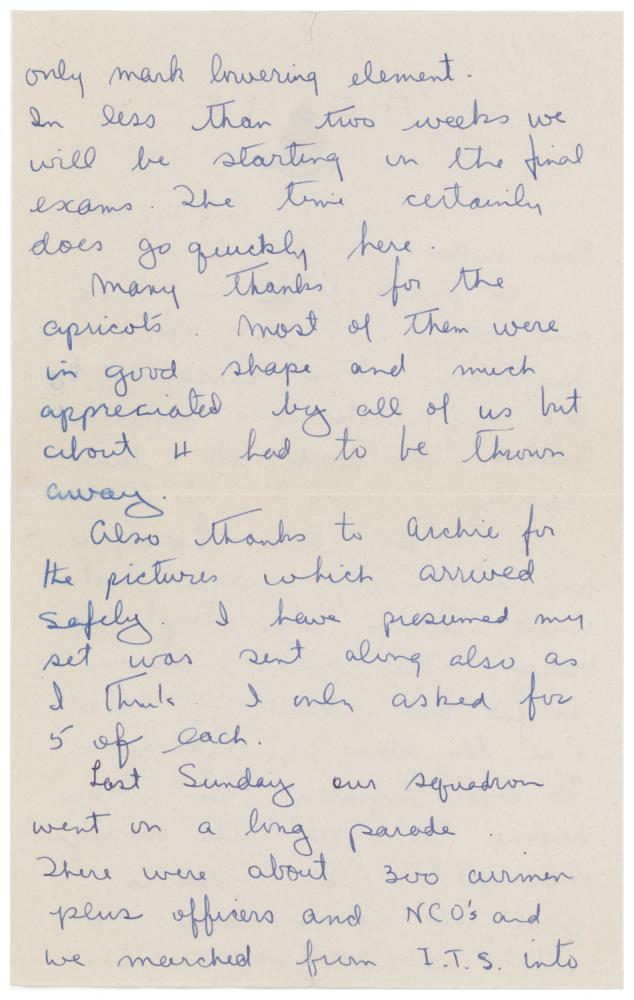 only mark lowering element.
In less than two weeks we
will be starting in the final
exams. The time certainly
does go quickly here.
Many thanks for the
apricots. Most of them were
in good shape and much
appreciated by all of us but
about 4 had to be thrown
away.
Also thanks to Archie for
the pictures which arrived
safely. I have presumed my
set was sent along also as
I think I only asked for
5 of each.
Last Sunday our squadron
went on a long parade.
There were about 300 airmen
plus officers and NCO's and
we marched from I.T.S. into